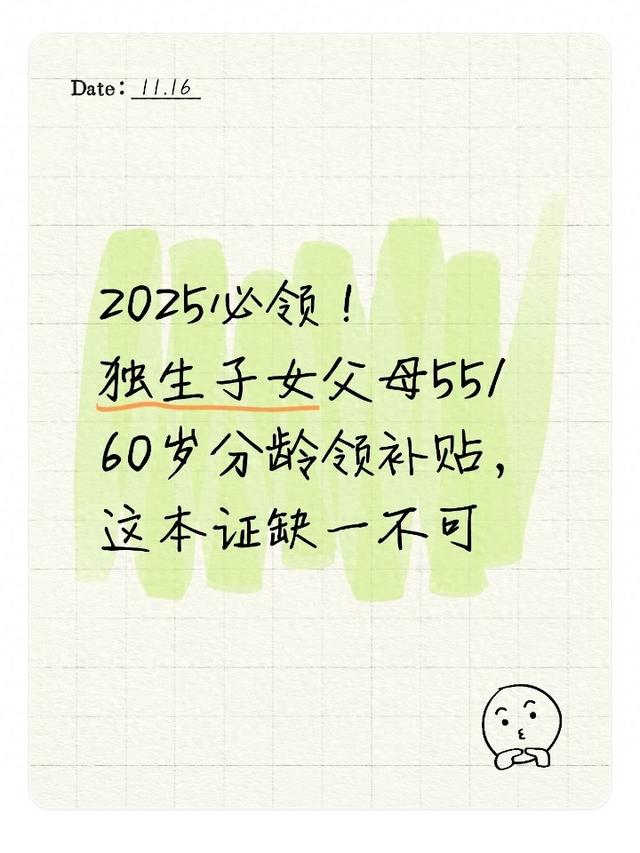 Date: 11.16
2025必领！
独生子女父母55/
60岁分龄领补贴，
这本证缺一不可